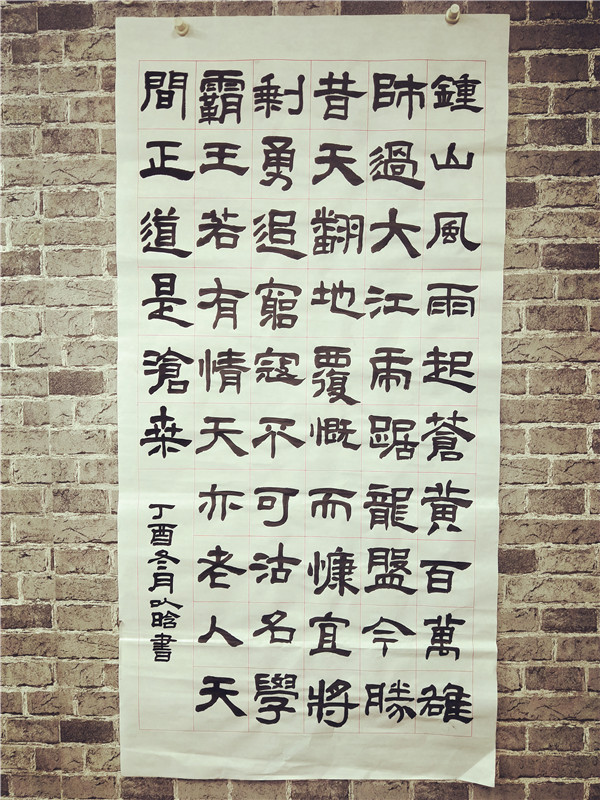 鍾山風雨起蒼黃百萬雄
師過大江虎踞龍盤今勝
昔天翻地覆慨而慷宜將
剩勇追窮寇不可沽名學
霸王若有情天亦老人天
間正道是滄桑
丁酉冬月以晗書